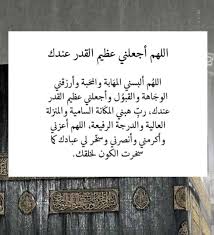 اللهم أجعلني عظيم القدر عندك
اللهُم ألبسني المهَابة والمحَبة وأرزقني
الوجَاهة والقبُول وأجعلني عظيم القدر
عندك، ربّ هبني المكانة السامية والمنزلة
العالية والدرجة الرفيعة، اللهم أعزني
وأكرمني وأنصرني وسخر لي عبادك كما
سخرت الكون لخلقك.